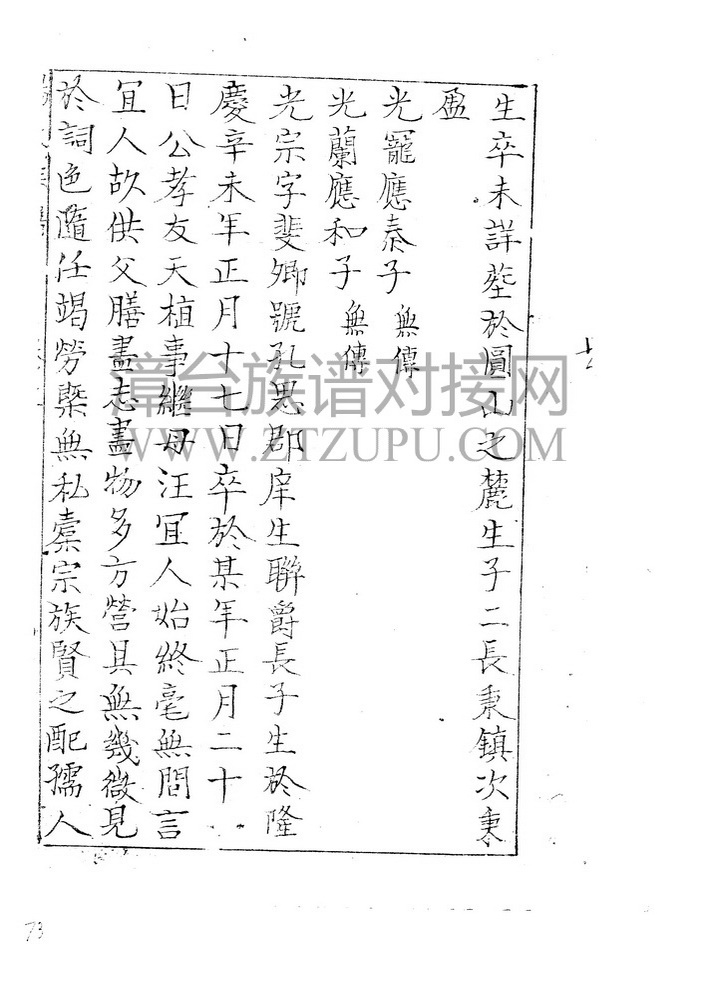 生卒未詳塟於圓山之麓生子二長秉鎮次秉
盈
光寵應泰子 無傳
光蘭應和子 無傳
光宗字斐卿號孔思郡庠生聯爵長子生於隆
慶辛未年正月十七日卒於某年正月二十
日公孝友天植事繼母汪宜人始終毫無間言
宜人故供父膳盡志盡物多方營具無幾微見
於詞色隨任竭勞槩無私橐宗族賢之配孺人
漳台族谱对接网
WWW.ZTZUPU.COM
73